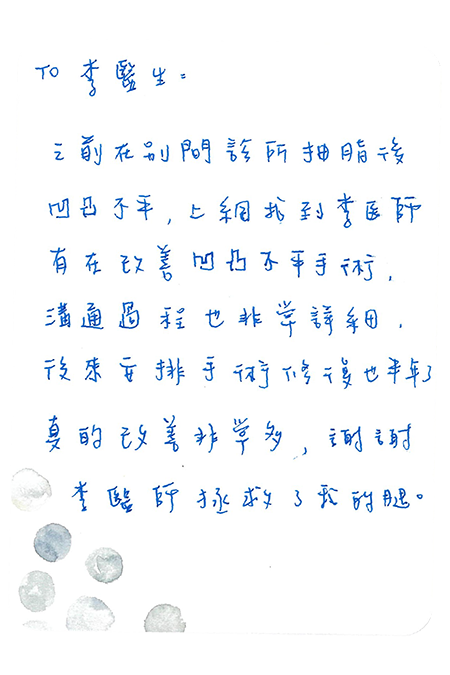 TO 李醫生：
之前在別間診所抽脂後
凹凸不平，上網找到李医師
有在改善凹凸不平手術，
溝通過程也非常詳細，
後來安排手術修復也半年了
真的改善非常多，謝謝
李醫師拯救了我的腿。